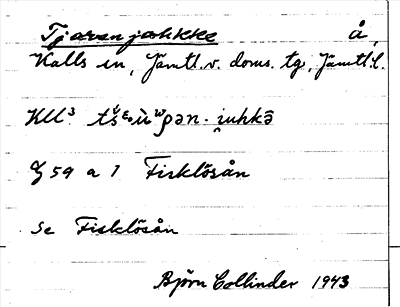 Tjaranjahkke å
Kalls sn, Jämtl. v. doms. tg, Jämtl. l.
Kll³
G 59 a 1 Fisklösån
Se Fisklösån
Björn Collinder 1943